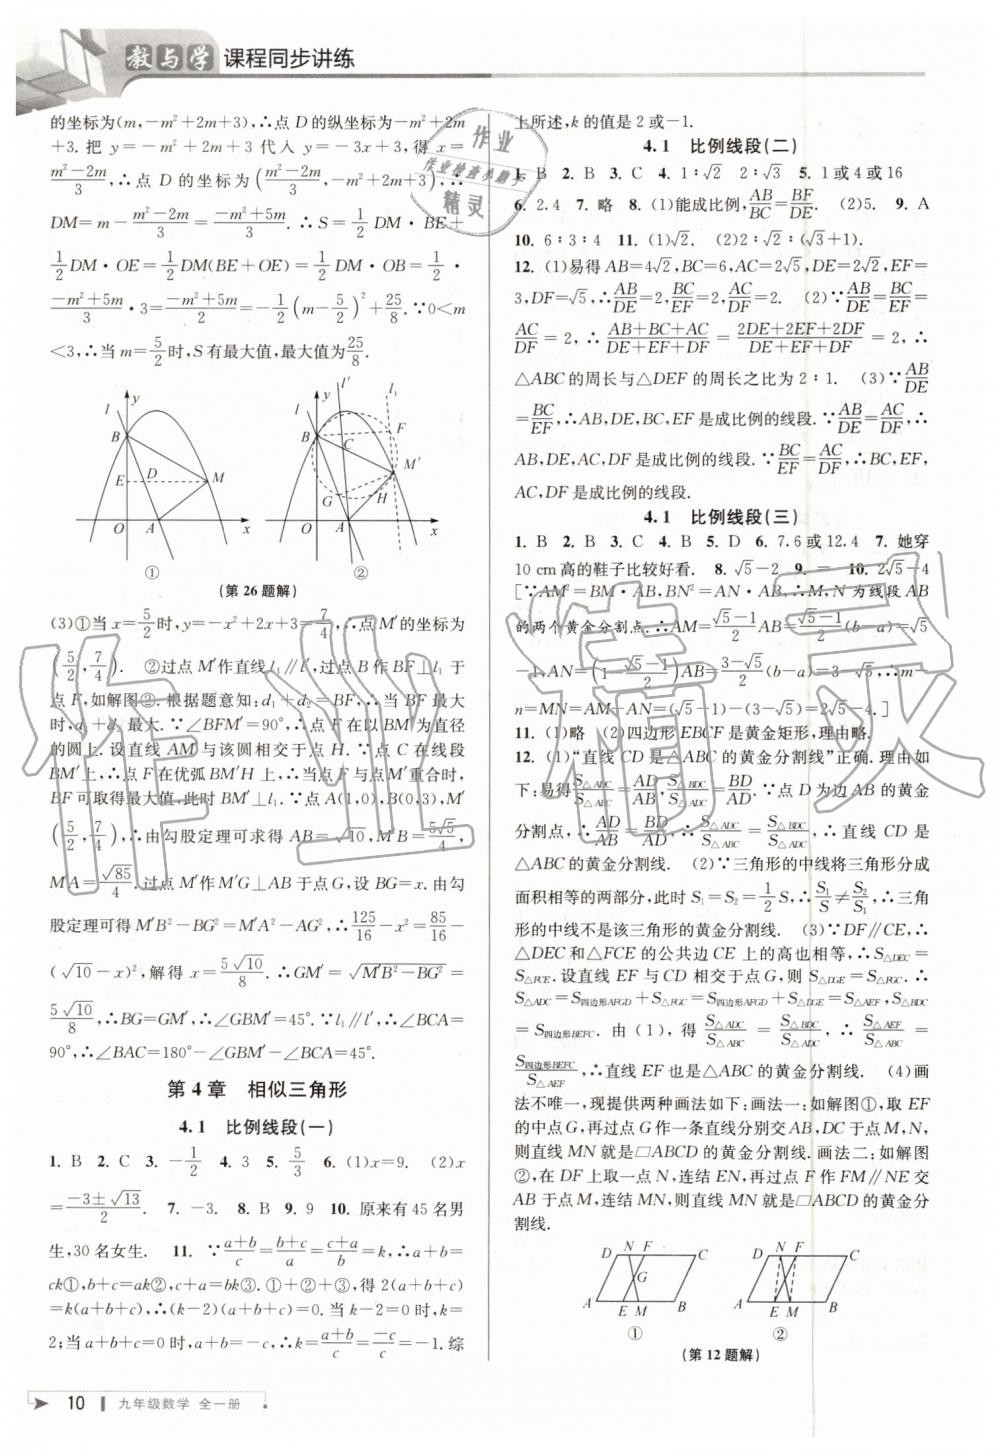 教与学 课程同步讲练
的坐标为(m,-m²+2m+3),∴点 D 的纵坐标为-m²+2m
+3. 把 y=-m²+2m+3 代入 y=-3x+3,得 x=
(m²-2m)/3,∴点 D 的坐标为((m²-2m)/3,-m²+2m+3),∴
DM=m-(m²-2m)/3=(-m²+5m)/3.∴S=1/2 DM·BE+
1/2 DM·OE=1/2 DM(BE+OE)=1/2 DM·OB=1/2·
(-m²+5m)/3·3=(-m²+5m)/2=-1/2(m-5/2)²+25/8.∵0<m
<3,∴当 m=5/2时,S有最大值,最大值为25/8.
l y B E D M O A x
①
l y l′ l₁ B C F M′ G H O A x
②
(第 26 题解)
(3)①当 x=5/2时,y=-x²+2x+3=7/4,∴点 M′的坐标为
(5/2,7/4). ②过点 M′作直线 l₁∥l′,过点 B 作 BF⊥l₁ 于
点 F,如解图②.根据题意知:d₁+d₂=BF,∴当 BF 最大
时,d₁+d₂ 最大.∵∠BFM′=90°,∴点 F 在以 BM′为直径
的圆上.设直线 AM′与该圆相交于点 H.∵点 C 在线段
BM′上,∴点 F 在优弧BM′H上,∴当点 F 与点 M′重合时,
BF 可取得最大值,此时 BM′⊥l₁.∵点 A(1,0),B(0,3),M′
(5/2,7/4),∴由勾股定理可求得 AB=√10,M′B=5√5/4,
M′A=√85/4.过点 M′作 M′G⊥AB 于点 G,设 BG=x.由勾
股定理可得 M′B²-BG²=M′A²-AG²,∴125/16-x²=85/16-
(√10-x)²,解得 x=5√10/8.∴GM′=√(M′B²-BG²)=
5√10/8,∴BG=GM′,∴∠GBM′=45°.∵l₁∥l′,∴∠BCA=
90°,∴∠BAC=180°-∠GBM′-∠BCA=45°.
第 4 章 相似三角形
4.1 比例线段(一)
1. B 2. C 3. -1/2 4. 3 5. 5/3 6. (1)x=9. (2)x
=(-3±√13)/2. 7. -3. 8. B 9. 9 10. 原来有 45 名男
生,30 名女生. 11. ∵(a+b)/c=(b+c)/a=(c+a)/b=k,∴a+b=
ck①,b+c=ak②,c+a=bk③.①+②+③,得 2(a+b+c)
=k(a+b+c),∴(k-2)(a+b+c)=0.当 k-2=0 时,k=
2;当 a+b+c=0 时,a+b=-c,∴k=(a+b)/c=-c/c=-1.综
上所述,k 的值是 2 或-1.
4.1 比例线段(二)
1. B 2. B 3. C 4. 1∶√2 2∶√3 5. 1或4或16
6. 2.4 7. 略 8. (1)能成比例,AB/BC=BF/DE. (2)5. 9. A
10. 6∶3∶4 11. (1)√2. (2)2∶√2∶(√3+1).
12. (1)易得 AB=4√2,BC=6,AC=2√5,DE=2√2,EF=
3,DF=√5,∴AB/DE=2,BC/EF=2,AC/DF=2. (2)∵AB/DE=BC/EF=
AC/DF=2,∴(AB+BC+AC)/(DE+EF+DF)=(2DE+2EF+2DF)/(DE+EF+DF)=2,∴
△ABC 的周长与△DEF 的周长之比为 2∶1. (3)∵AB/DE
=BC/EF,∴AB,DE,BC,EF 是成比例的线段.∵AB/DE=AC/DF,∴
AB,DE,AC,DF 是成比例的线段.∵BC/EF=AC/DF,∴BC,EF,
AC,DF 是成比例的线段.
4.1 比例线段(三)
1. B 2. B 3. C 4. B 5. D 6. 7.6或12.4 7. 她穿
10 cm 高的鞋子比较好看. 8. √5-2 9. = 10. 2√5-4
[∵AM²=BM·AB,BN²=AN·AB,∴M,N 为线段 AB
的两个黄金分割点.∴AM=(√5-1)/2 AB=(√5-1)/2(b-a)=√5
-1,AN=(1-(√5-1)/2)AB=(3-√5)/2(b-a)=3-√5,∴m-
n=MN=AM-AN=(√5-1)-(3-√5)=2√5-4.]
11. (1)略 (2)四边形 EBCF 是黄金矩形,理由略.
12. (1)“直线 CD 是△ABC 的黄金分割线”正确.理由如
下:易得S△ADC/S△ABC=AD/AB,S△BDC/S△ADC=BD/AD.∵点 D 为边 AB 的黄金
分割点,∴AD/AB=BD/AD,∴S△ADC/S△ABC=S△BDC/S△ADC,∴直线 CD 是
△ABC 的黄金分割线. (2)∵三角形的中线将三角形分成
面积相等的两部分,此时 S₁=S₂=1/2 S,∴S₁/S≠S₂/S₁,∴三角
形的中线不是该三角形的黄金分割线. (3)∵DF∥CE,∴
△DEC 和△FCE 的公共边 CE 上的高也相等,∴S△DEC=
S△FCE.设直线 EF 与 CD 相交于点 G,则 S△DGE=S△FGC.∴
S△ADC=S四边形AFGD+S△FGC=S四边形AFGD+S△DGE=S△AEF,S△BDC
=S四边形BEFC.由(1),得 S△ADC/S△ABC=S△BDC/S△ADC,∴S△AEF/S△ABC=
S四边形BEFC/S△AEF,∴直线 EF 也是△ABC 的黄金分割线. (4)画
法不唯一,现提供两种画法如下:画法一:如解图①,取 EF
的中点 G,再过点 G 作一条直线分别交 AB,DC 于点 M,N,
则直线 MN 就是□ABCD 的黄金分割线.画法二:如解图
②,在 DF 上取一点 N,连结 EN,再过点 F 作 FM∥NE 交
AB 于点 M,连结 MN,则直线 MN 就是□ABCD 的黄金分
割线.
D N F C G A E M B
①
D N F C A E M B
②
(第 12 题解)
10 九年级数学 全一册
作业
作业检查小助手
精灵
作业精灵